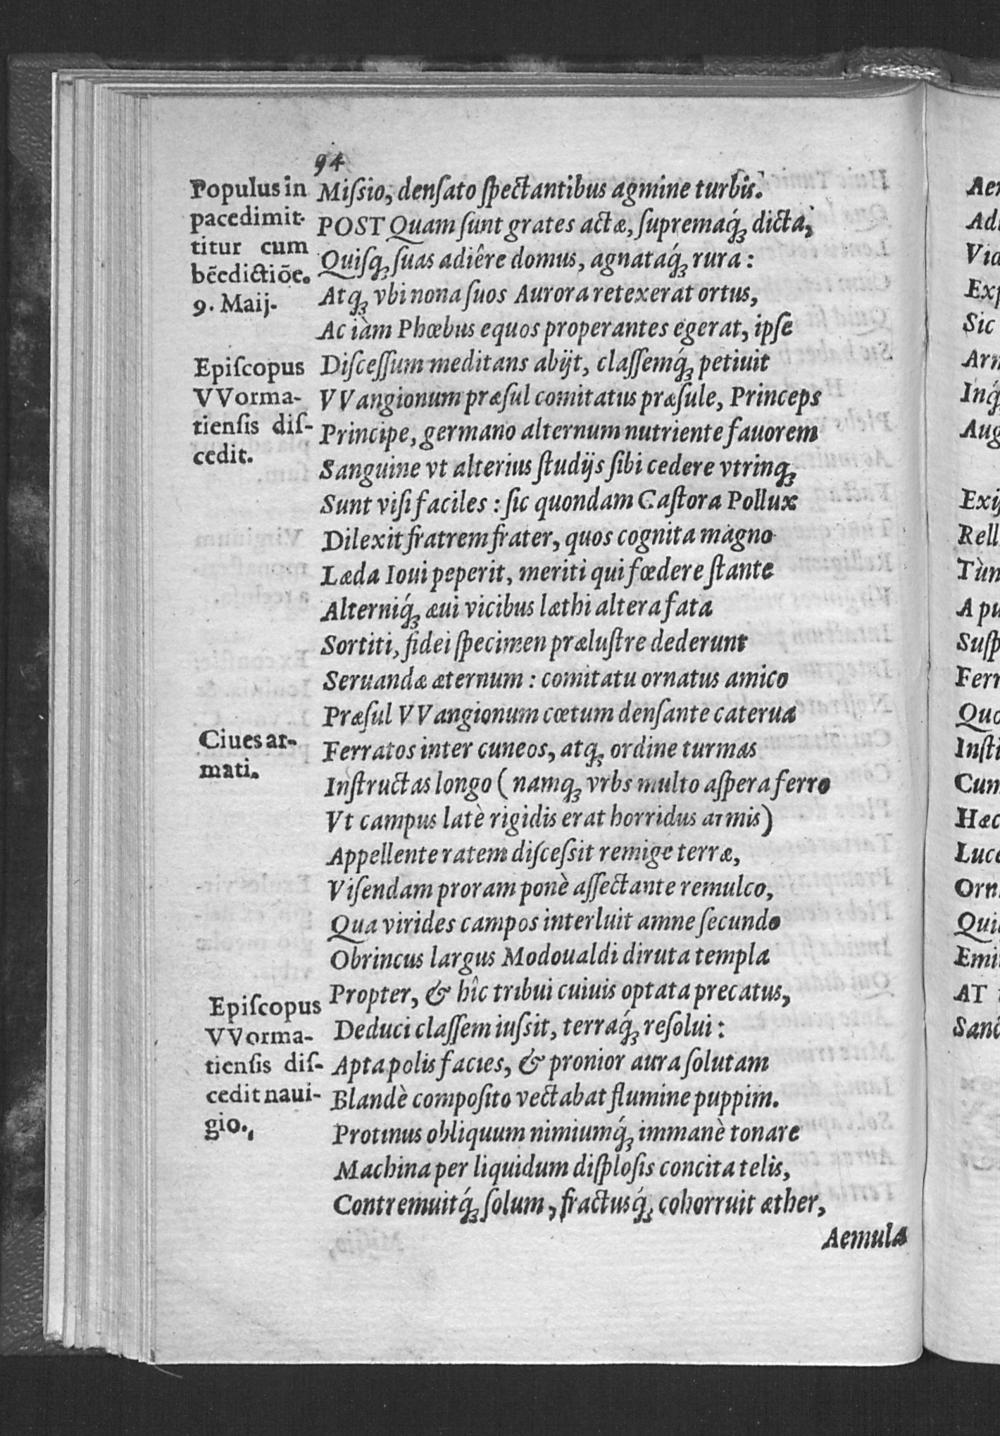 94
Populus in
pacedimit-
titur cum
bēedictiōe.
9. Maij.
Miſsio, denſato ſpectantibus agmine turbis.
POST Quam ſunt grates actæ, ſupremaq́ꝫ dicta,
Quiſqꝫ ſuas adiêre domus, agnataq́ꝫ rura:
Atqꝫ vbi nona ſuos Aurora retexerat ortus,
Ac iàm Phœbus equos properantes egerat, ipſe
Epiſcopus
VVorma-
tienſis diſ-
cedit.
Diſceſſum meditans abijt, claſſemq́ꝫ petiuit
VVangionum præſul comitatus præſule, Princeps
Principe, germano alternum nutriente fauorem
Sanguine vt alterius ſtudijs ſibi cedere vtrinqꝫ
Sunt viſi faciles: ſic quondam Caſtora Pollux
Dilexit fratrem frater, quos cognita magno
Læda Ioui peperit, meriti qui fœdere ſtante
Alterniq́ꝫ æui vicibus læthi altera fata
Sortiti, fidei ſpecimen præluſtre dederunt
Seruandæ æternum: comitatu ornatus amico
Præſul VVangionum cœtum denſante caterua
Ciues ar-
mati.
Ferratos inter cuneos, atqꝫ ordine turmas
Inſtructas longo (namqꝫ vrbs multo aſpera ferro
Vt campus latè rigidis erat horridus armis)
Appellente ratem diſceſsit remige terræ,
Viſendam proram ponè aſſectante remulco,
Qua virides campos interluit amne ſecundo
Obrincus largus Modoualdi diruta templa
Propter, & hîc tribui cuiuis optata precatus,
Epiſcopus
VVorma-
tienſis diſ-
cedit naui-
gio.
Deduci claſſem iuſsit, terraq́ꝫ reſolui:
Apta polis facies, & pronior aura ſolutam
Blandè compoſito vectabat flumine puppim.
Protinus obliquum nimiumq́ꝫ immanè tonare
Machina per liquidum diſploſis concita telis,
Contremuitq́ꝫ ſolum, fractusq́ꝫ cohorruit æther,
Aemula
Ad
Via
Sic
Aug
Rell
Tùm
A pu
Suſp
Ferr
Quo
Inſti
Cum
Hæc
Luce
Orn
Qui
Emi
AT